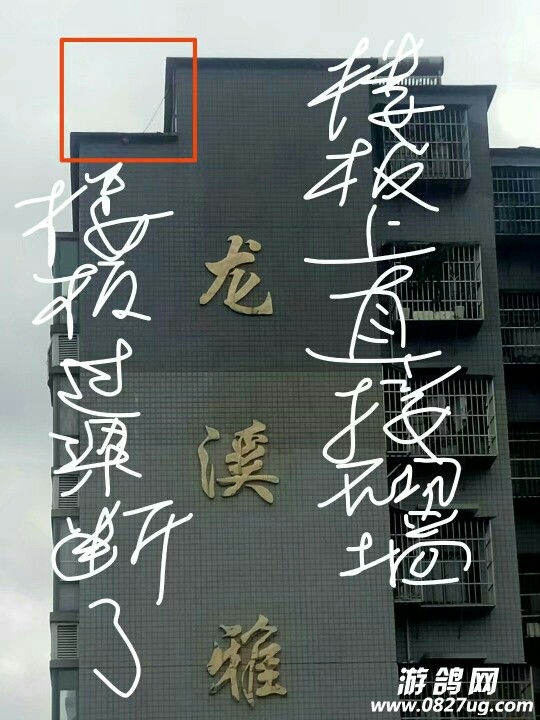 楼板过梁断了
龙溪雅
楼板上直接砌墙
游鸽网
www.0827ug.com